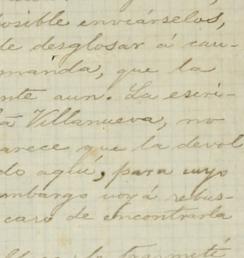 osible enviárselos,
de desglosar á cau-
manda, que la
nte aun. La escri-
á Villanueva, no
arece que la devol
do aquí, para cuyo
mbargo voy á rebus-
caso de encontrarla
la transmité